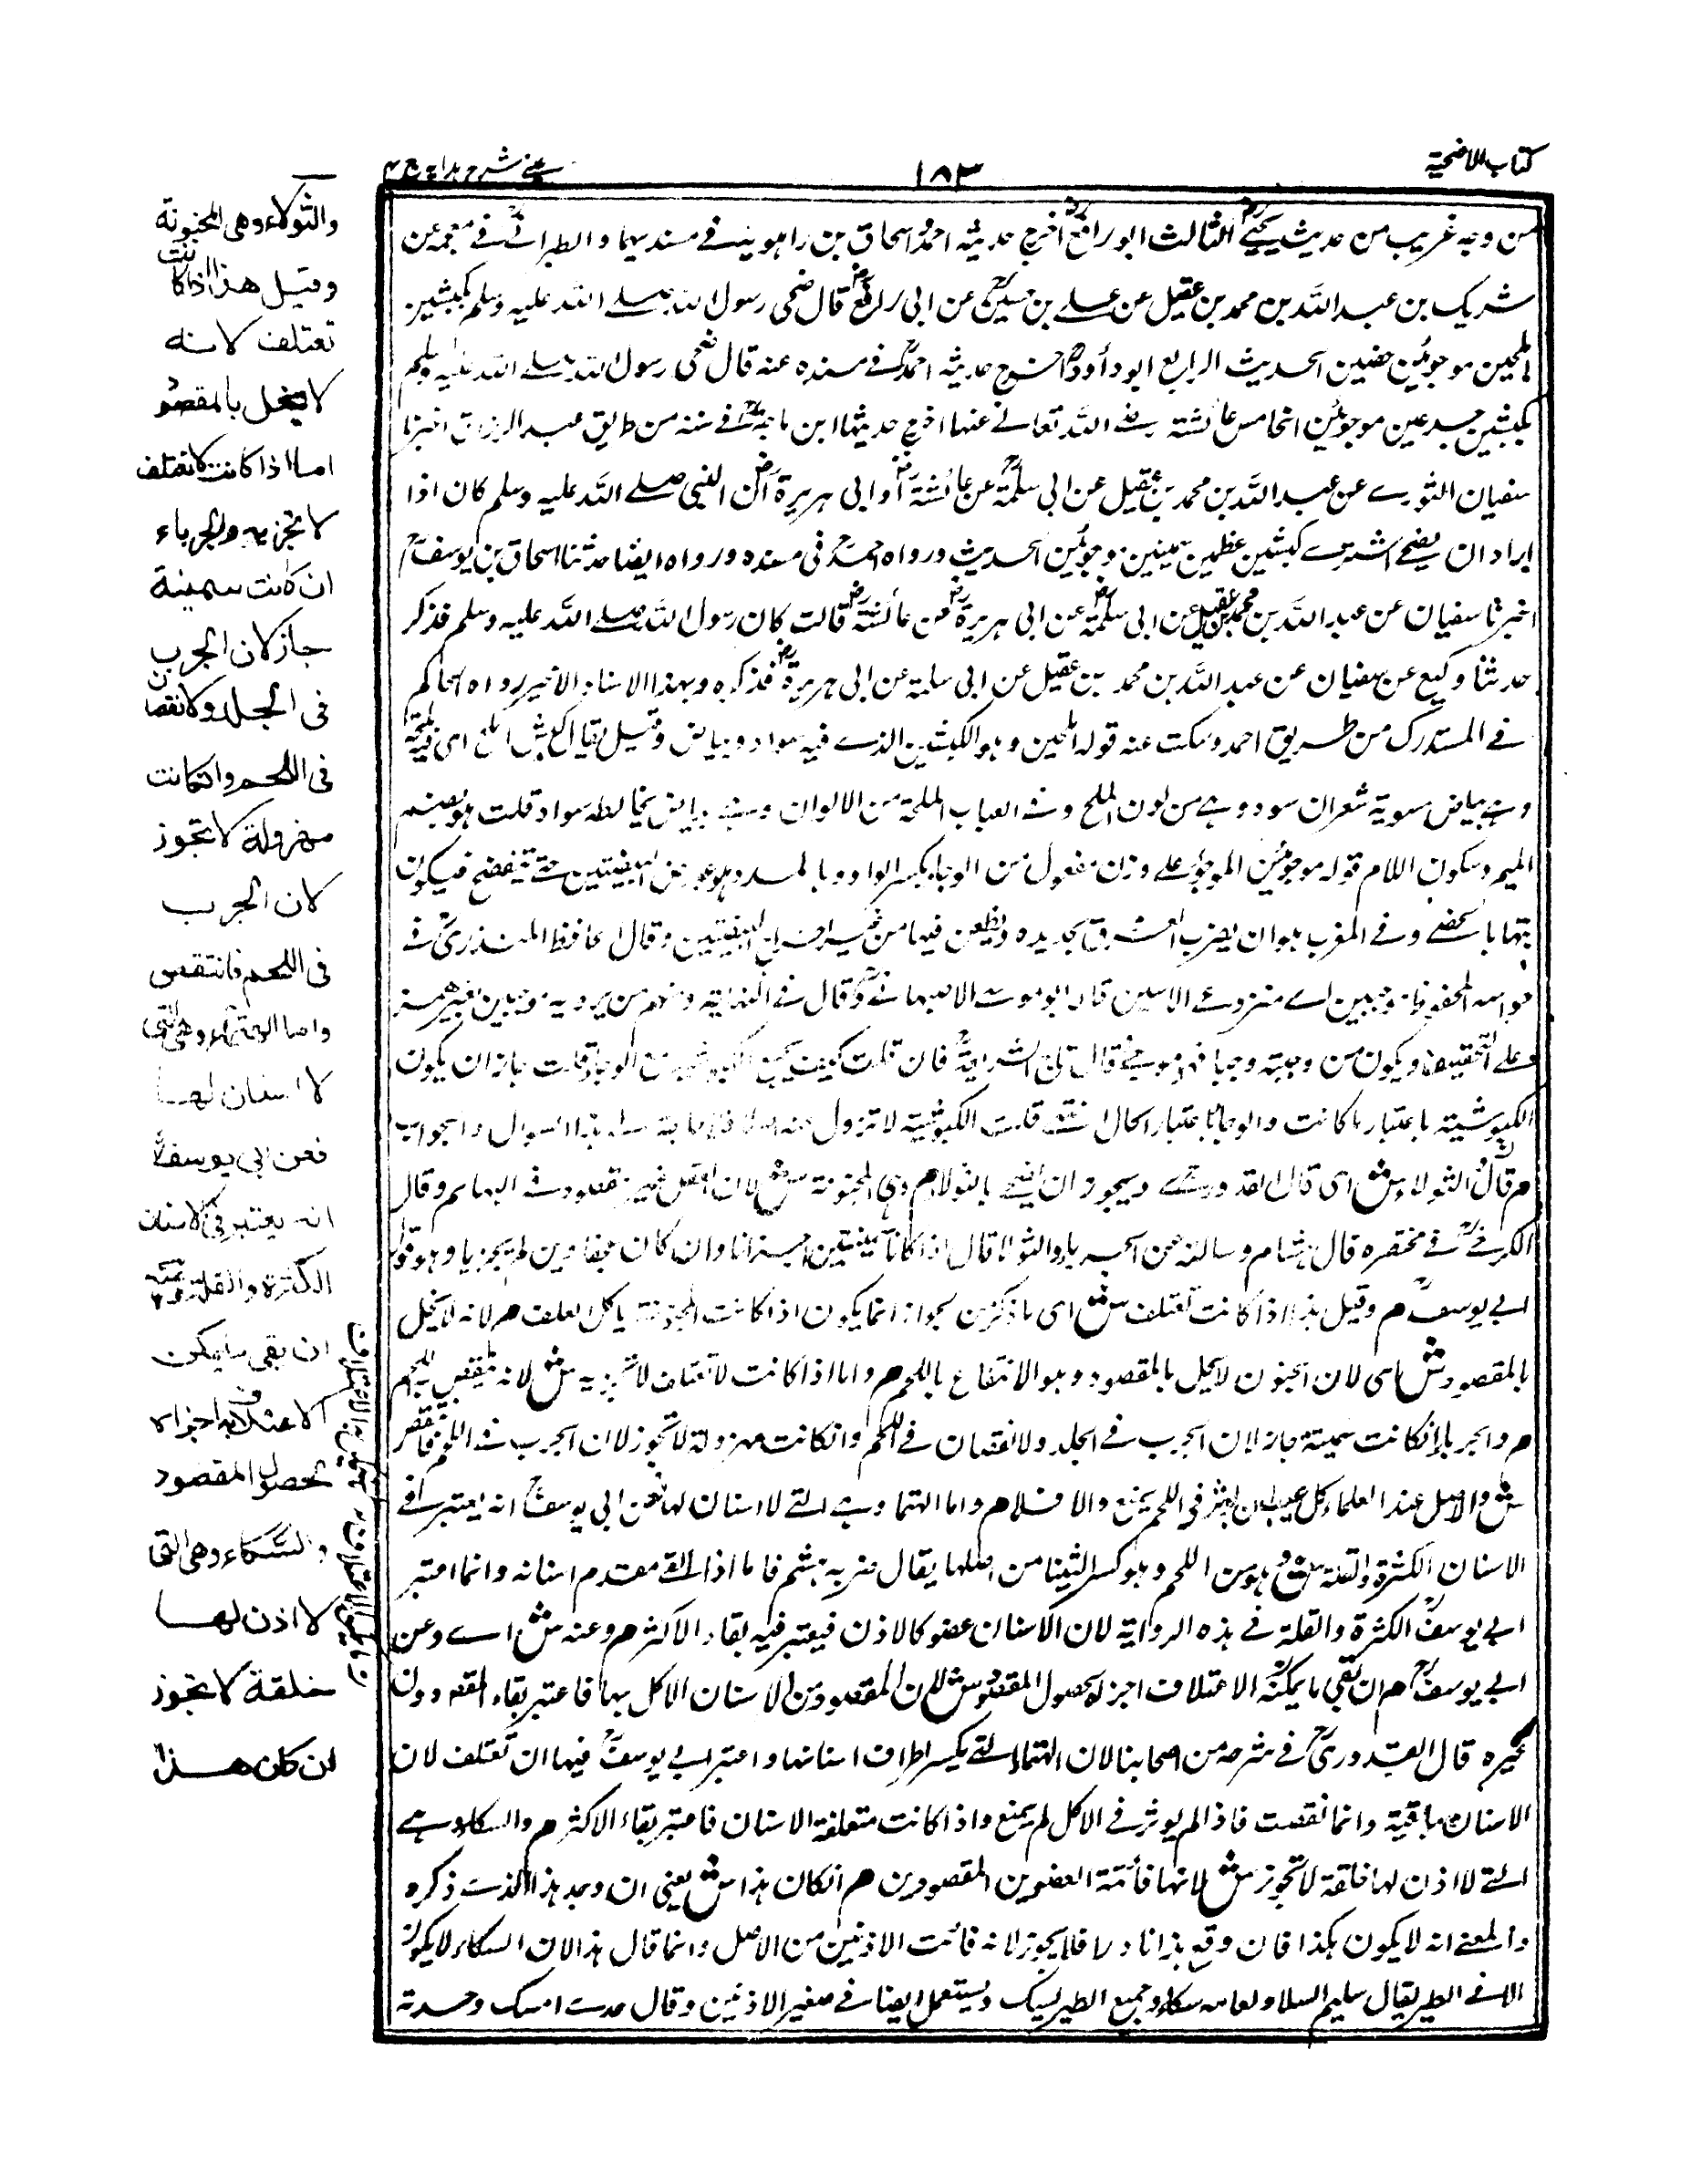 كتاب الاضحية
١٨٣
عيني شرح هدايه ج ٤
من وجه غريب من حديث يحيى الثالث ابو رافع اخرج حديثه احمد واسحاق بن راهويه في مسنديهما والطبراني في معجمه عن
شريك بن عبد الله بن محمد بن عقيل عن علي بن حسين عن ابي رافع قال ضحى رسول الله صلى الله عليه وسلم بكبشين
املحين موجوئين خصيين الحديث الرابع ابو داود اخرج حديثه احمد في مسنده عنه قال ضحى رسول الله صلى الله عليه وسلم
بكبشين جذعين موجوئين الخامس عائشة رضي الله تعالى عنها اخرج حديثها ابن ماجة في سننه من طريق عبد الرزاق اخبرنا
سفيان الثوري عن عبد الله بن محمد بن عقيل عن ابي سلمة عن عائشة او ابي هريرة ان النبي صلى الله عليه وسلم كان اذا
اراد ان يضحي اشترى كبشين عظيمين سمينين موجوئين الحديث ورواه احمد في مسنده ورواه ايضا حدثنا اسحاق بن يوسف
اخبرنا سفيان عن عبد الله بن محمد بن عقيل عن ابي سلمة عن ابي هريرة عن عائشة قالت كان رسول الله صلى الله عليه وسلم فذكره
حدثنا وكيع عن سفيان عن عبد الله بن محمد بن عقيل عن ابي سلمة عن ابي هريرة فذكره وبهذا الاسناد الاخير رواه الحاكم
في المستدرك من طريق احمد وسكت عنه قوله املحين وهو الكبشين الذي فيه سواد وبياض وقيل يقال كبش املح اي فيه ملحة
وهي بياض سوية شعران سود وهي من لون الملح وفي العباب الملحة من الالوان وهي بياض يخالطه سواد قلت هو بضم
الميم وسكون اللام قوله موجوئين الموجوء على وزن مفعول من الوجاء بكسر الواو وبالمد وهو رض البيضتين حتى تنفضخ فيكون
شبيها بالخصي وفي المغرب هو ان يضرب العروق بحديدة ويطعن فيها من غير اخراج البيضتين وقال الحافظ المنذري في
حواشيه المحفوظ موجيين اي منزوعي الانثيين قاله ابو موسى الاصبهاني وقال في النهاية ومنهم من يرويه موجيين بغير همز
وعلى التخفيف ويكون من وجيته وجيا فهو موجي قال تاج الشريعة فان قلت كيف يجمع الكبوشية مع الوجاء قلت جاز ان يكون
الكبوشية باعتبار ما كانت والوجاء باعتبار الحال انتهى قلت الكبوشية لا تزول عنه اصلا فلا حاجة الى هذا السوال والجواب
م قال والثولاء ش اي قال القدوري ويجوز ان يضحي بالثولاء م وهي المجنونة ش لان العقل غير مقصود في البهائم وقال
الكرخي في مختصره قال هشام وسالته عن الجرباء والثولاء قال اذا كانتا سمينتين اجزاتا وان كان عجفاوين لم يجزيا وهو قول
ابي يوسف م وقيل هذا اذا كانت تعتلف ش اي ما ذكر من الجواز انما يكون اذا كانت المجنونة ياكل العلف م لانه لا يخل
بالمقصود ش اي لان الجنون لا يخل بالمقصود وهو الانتفاع باللحم م واما اذا كانت لا تعتلف لا تجزيه ش لانه ينقص اللحم
م والجرباء ان كانت سمينة جاز لان الجرب في الجلد ولا نقصان في اللحم وان كانت مهزولة لا تجوز لان الجرب في اللحم فانتقص
ش والاصل عند العلماء كل عيب ان يوثر في اللحم يمنع والا فلا م واما الهتماء وهي التي لا اسنان لها فعن ابي يوسف انه يعتبر في
الاسنان الكثرة والقلة ش هو من اللحم وهو كسر الثنايا من اصلها يقال ضربه فهتم فاه اذا القى مقدم اسنانه وانما اعتبر
ابي يوسف الكثرة والقلة في هذه الرواية لان الاسنان عضو كالاذن فيعتبر فيه بقاء الاكثر م وعنه ش اي وعن
ابي يوسف م ان بقي ما يمكنه الاعتلاف اجزاه لحصول المقصود ش لان المقصود من الاسنان الاكل بها فاعتبر بقاء المقصود دون
غيره قال القدوري في شرحه من اصحابنا لان الهتماء التي يكسر اطراف اسنانها واعتبر ابي يوسف فيها ان تعتلف لان
الاسنان باقية وانما نقصت فاذا لم يوثر في الاكل لم يمنع واذا كانت متعلقة الاسنان فاعتبر بقاء الاكثر م والسكاء وهي
التي لا اذن لها خلقة لا تجوز ش لانها فائتة العضوين المقصودين م ان كان هذا ش يعني ان وجد هذا الذي ذكره
والمعنى انه لا يكون هكذا فان وقع هذا نادرا فلا يجوز لانه فائت الاذنين من الاصل وانما قال هذا لان السكاء لا يكون
الا في الطير يقال سليم السلاء ولعامة سكاء وجميع الطير سك ويستعمل ايضا في صغير الاذنين وقال حدت امسك وحدته
والثولاء وهى المجنونة
وقيل هذا اذا كانت
تعتلف لانه
لا يخل بالمقصود
اما اذا كانت لا تعتلف
لا تجزيه والجرباء
ان كانت سمينة
جاز لان الجرب
فى الجلد ولا نقصان
فى اللحم وان كانت
مهزولة لا تجوز
لان الجرب
فى اللحم فانتقص
واما الهتماء وهى التى
لا اسنان لها
فعن ابى يوسف
انه يعتبر فى الاسنان
الكثرة والقلة وعنه
ان بقى ما يمكن
الاعتلاف به اجزاه
لحصول المقصود
والسكاء وهى التى
لا اذن لها
خلقة لا تجوز
ان كان هذا